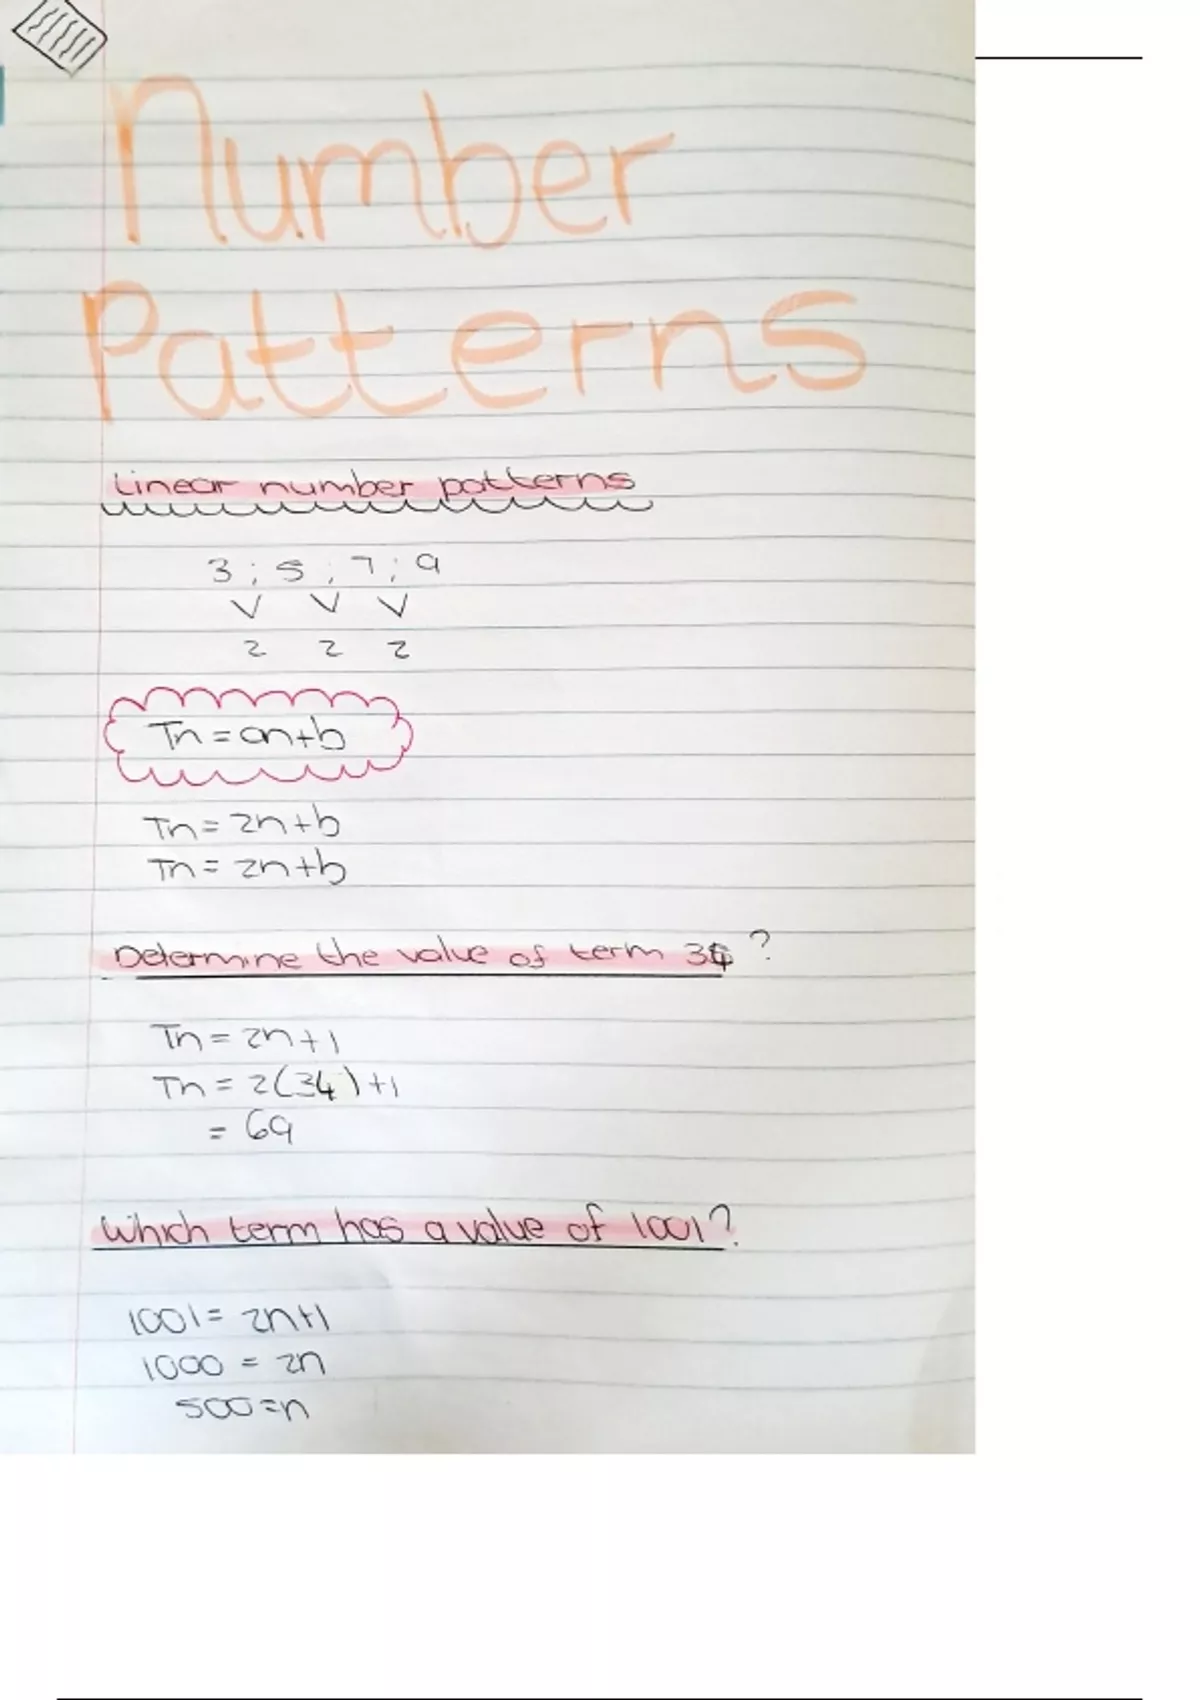 Number
Patterns
Linear number patterns
3 ; 5 ; 7 ; 9
2 2 2
Tn = an+b
Tn = 2n+b
Tn = 2n+b
Determine the value of term 34 ?
Tn = 2n+1
Tn = 2(34)+1
= 69
Which term has a value of 1001?
1001 = 2n+1
1000 = 2n
500=n